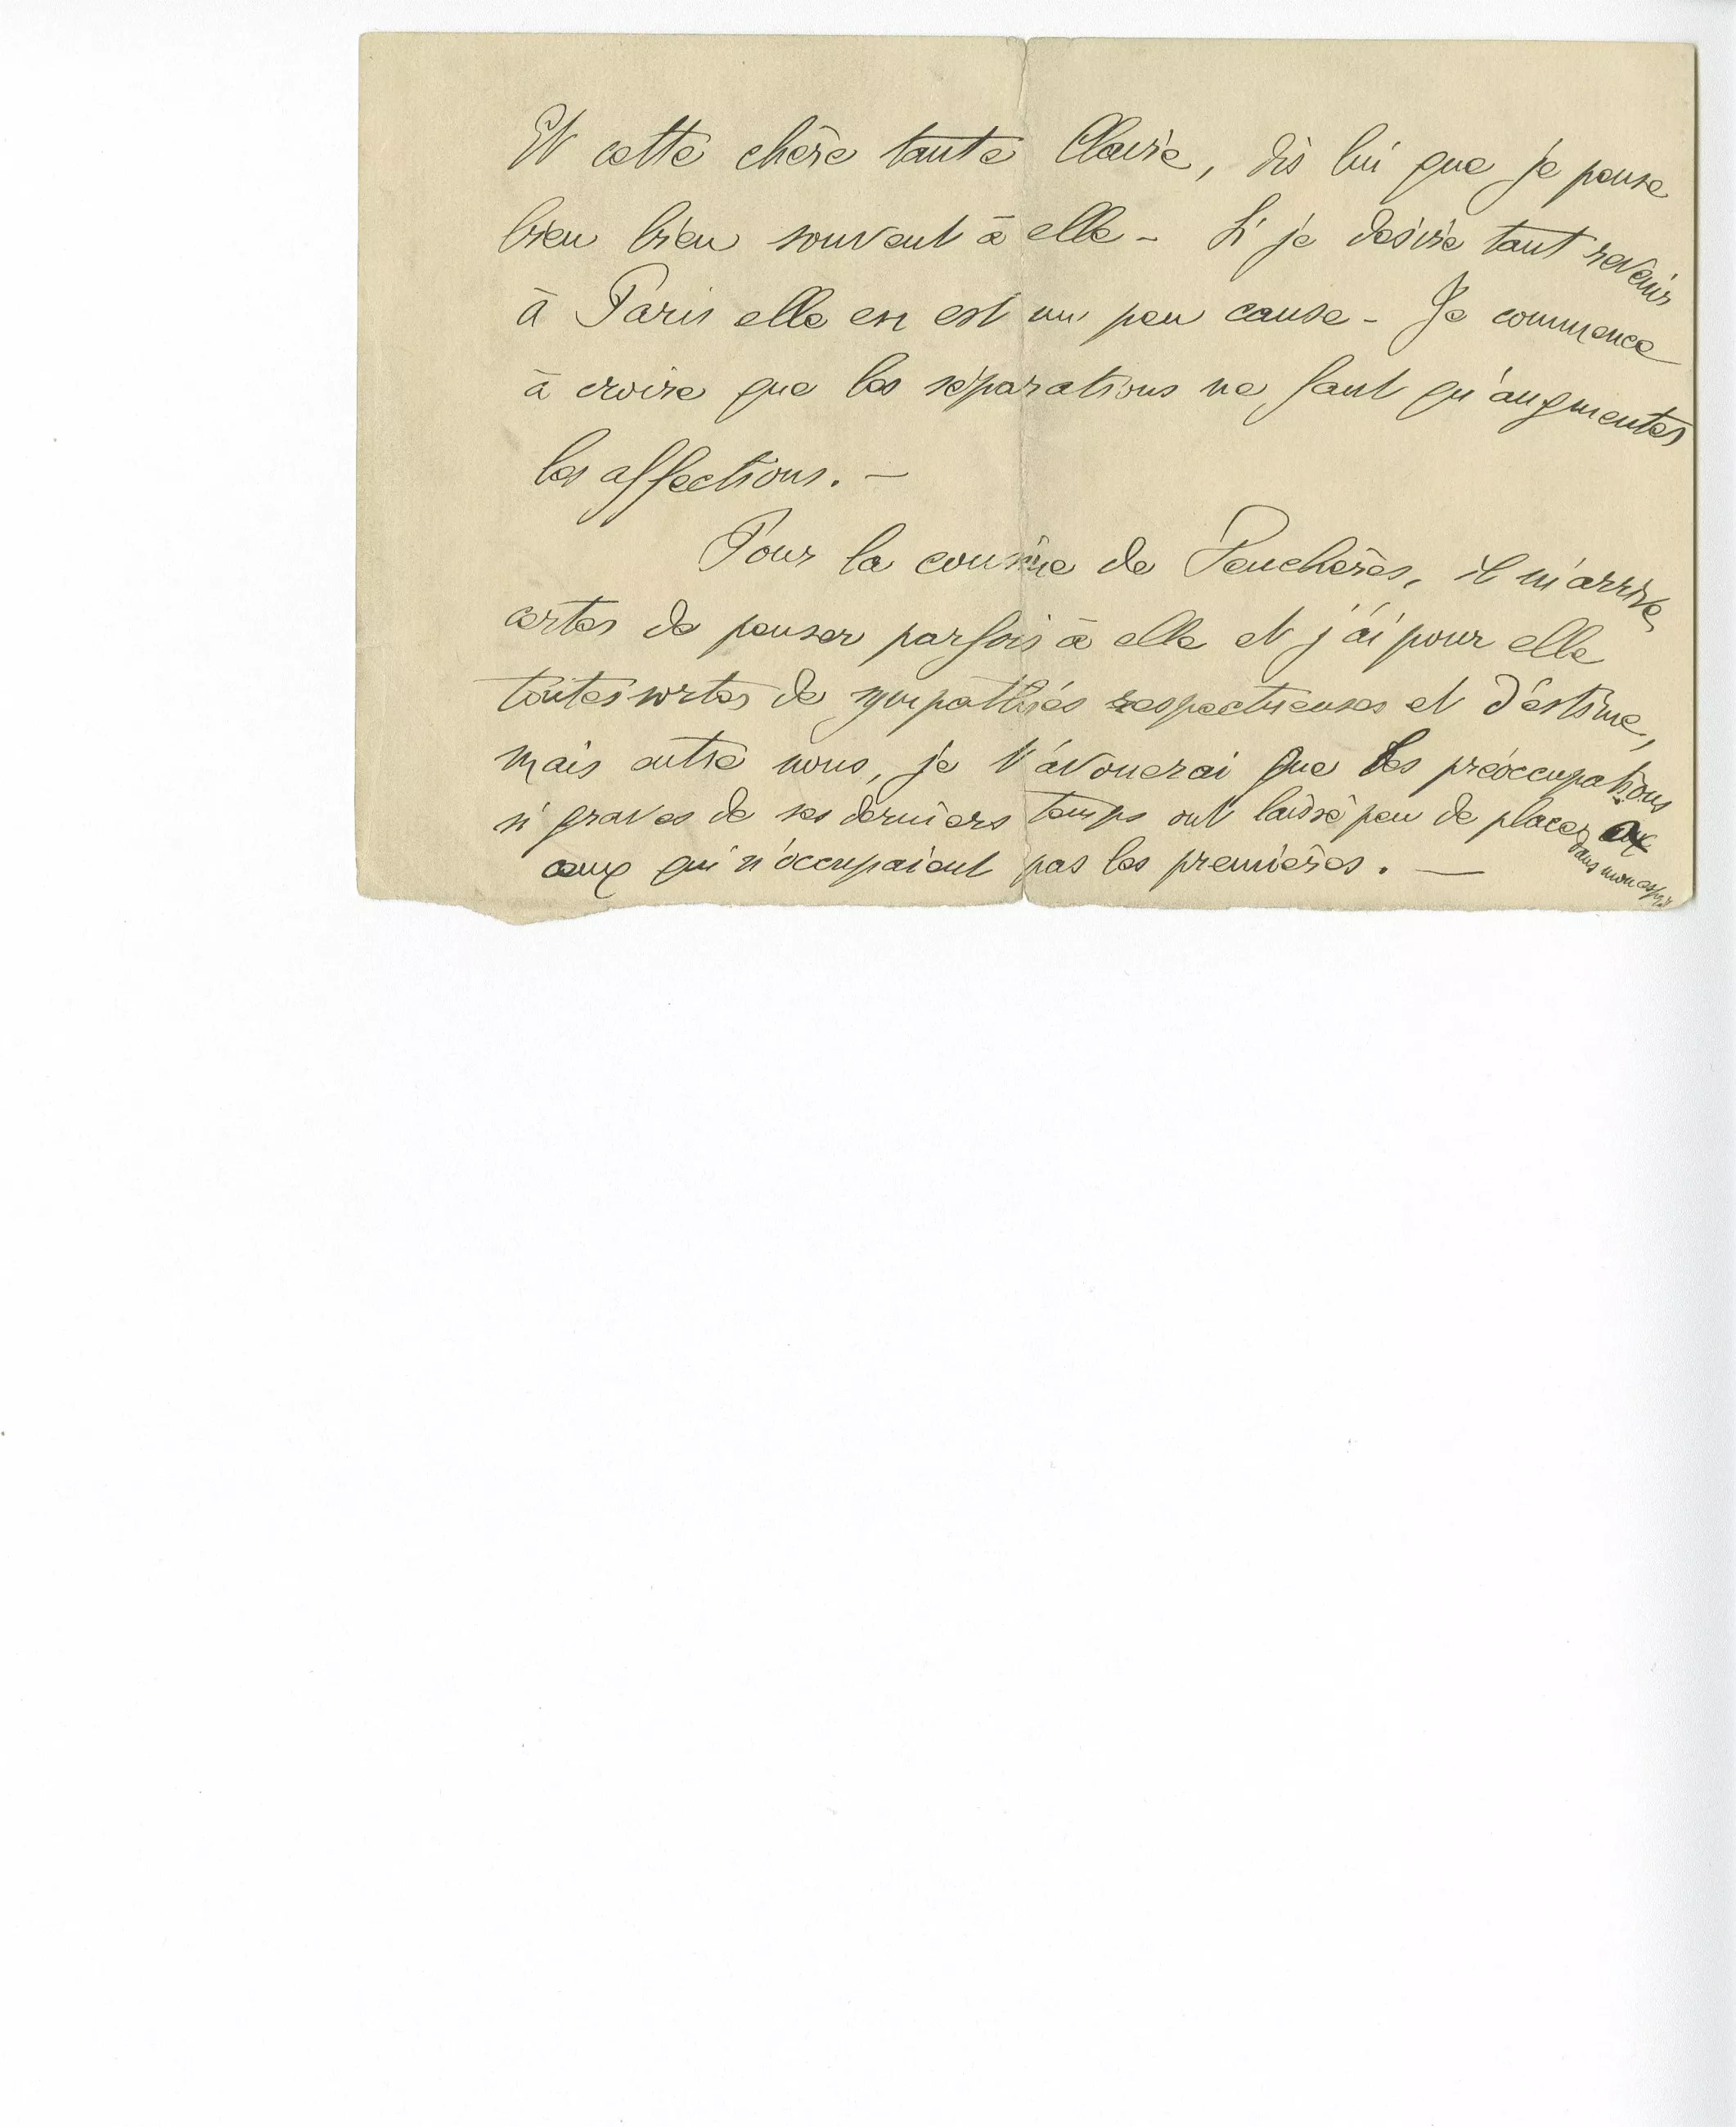 Et cette chère tante Claire, dis lui que je pense
bien bien souvent à elle – Si je désire tant revenir
à Paris elle en est un peu cause – Je commence
à croire que les séparations ne font qu'augmenter
les affections. –
Pour la cousine de Feuchères, il m'arrive,
certes de penser parfois à elle et j'ai pour elle
toutes sortes de sympathies respectueuses et d'estime,
mais entre nous, je t'avouerai que les préoccupations
si graves de ses derniers temps ont laissé peu de places
dans mon esprit
aux qui n'occupaient pas les premières. —